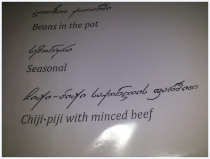 Beans in the pot
სეზონური
Seasonal
ჩიჟი-ბიჟი საქონლის ფარშით
Chiji-piji with minced beef